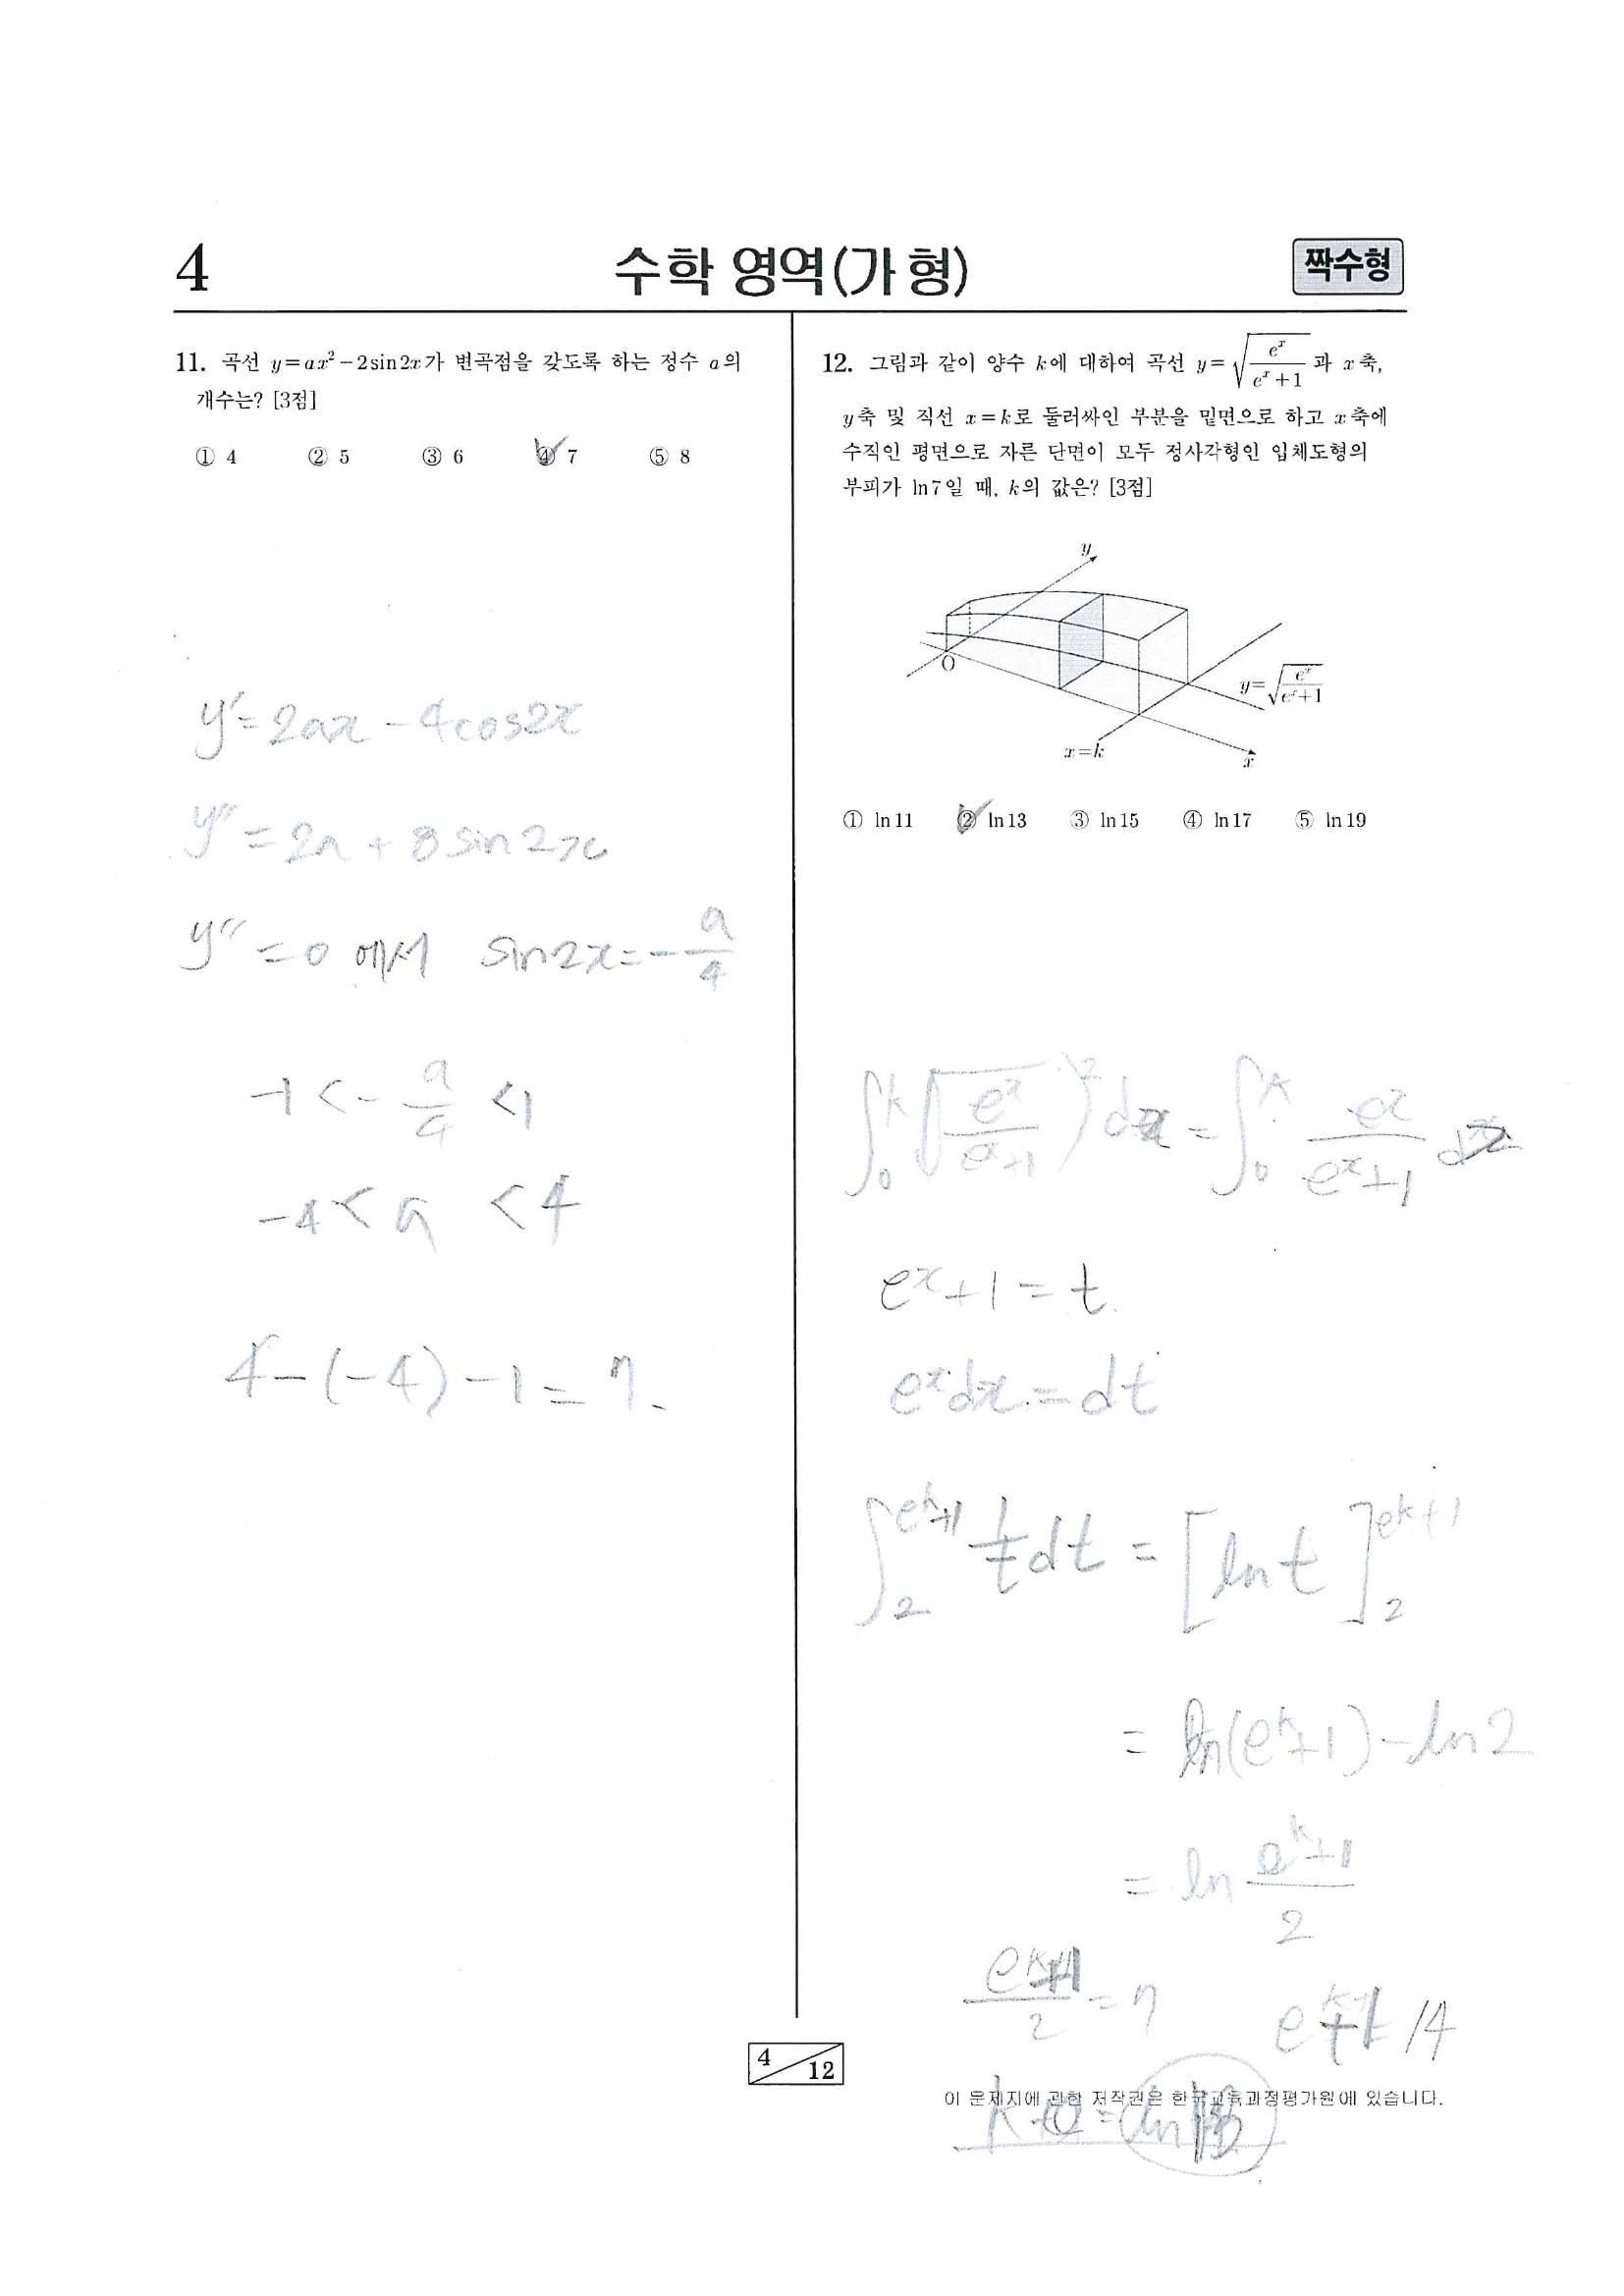 4
수학 영역(가 형)
짝수형
11. 곡선 y=ax²-2sin2x가 변곡점을 갖도록 하는 정수 a의
개수는? [3점]
① 4 ② 5 ③ 6 ④ 7 ⑤ 8
y'=2ax-4cos2x
y''=2a+8sin2x
y''=0 에서 sin2x=-a/4
-1<-a/4<1
-4<a<4
4-(-4)-1=7.
12. 그림과 같이 양수 k에 대하여 곡선 y=√(eˣ/(eˣ+1)) 과 x축,
y축 및 직선 x=k로 둘러싸인 부분을 밑면으로 하고 x축에
수직인 평면으로 자른 단면이 모두 정사각형인 입체도형의
부피가 ln7일 때, k의 값은? [3점]
y
O
y=√(eˣ/(eˣ+1))
x=k
x
① ln11 ② ln13 ③ ln15 ④ ln17 ⑤ ln19
∫₀ᵏ(√(eˣ/(eˣ+1)))²dx=∫₀ᵏ eˣ/(eˣ+1) dx
eˣ+1=t
eˣdx=dt
∫₂^(eᵏ+1) 1/t dt=[ln t]₂^(eᵏ+1)
=ln(eᵏ+1)-ln2
=ln (eᵏ+1)/2
(eᵏ+1)/2=7 eᵏ+1 14
4/12
이 문제지에 관한 저작권은 한국교육과정평가원에 있습니다.
k = ln13